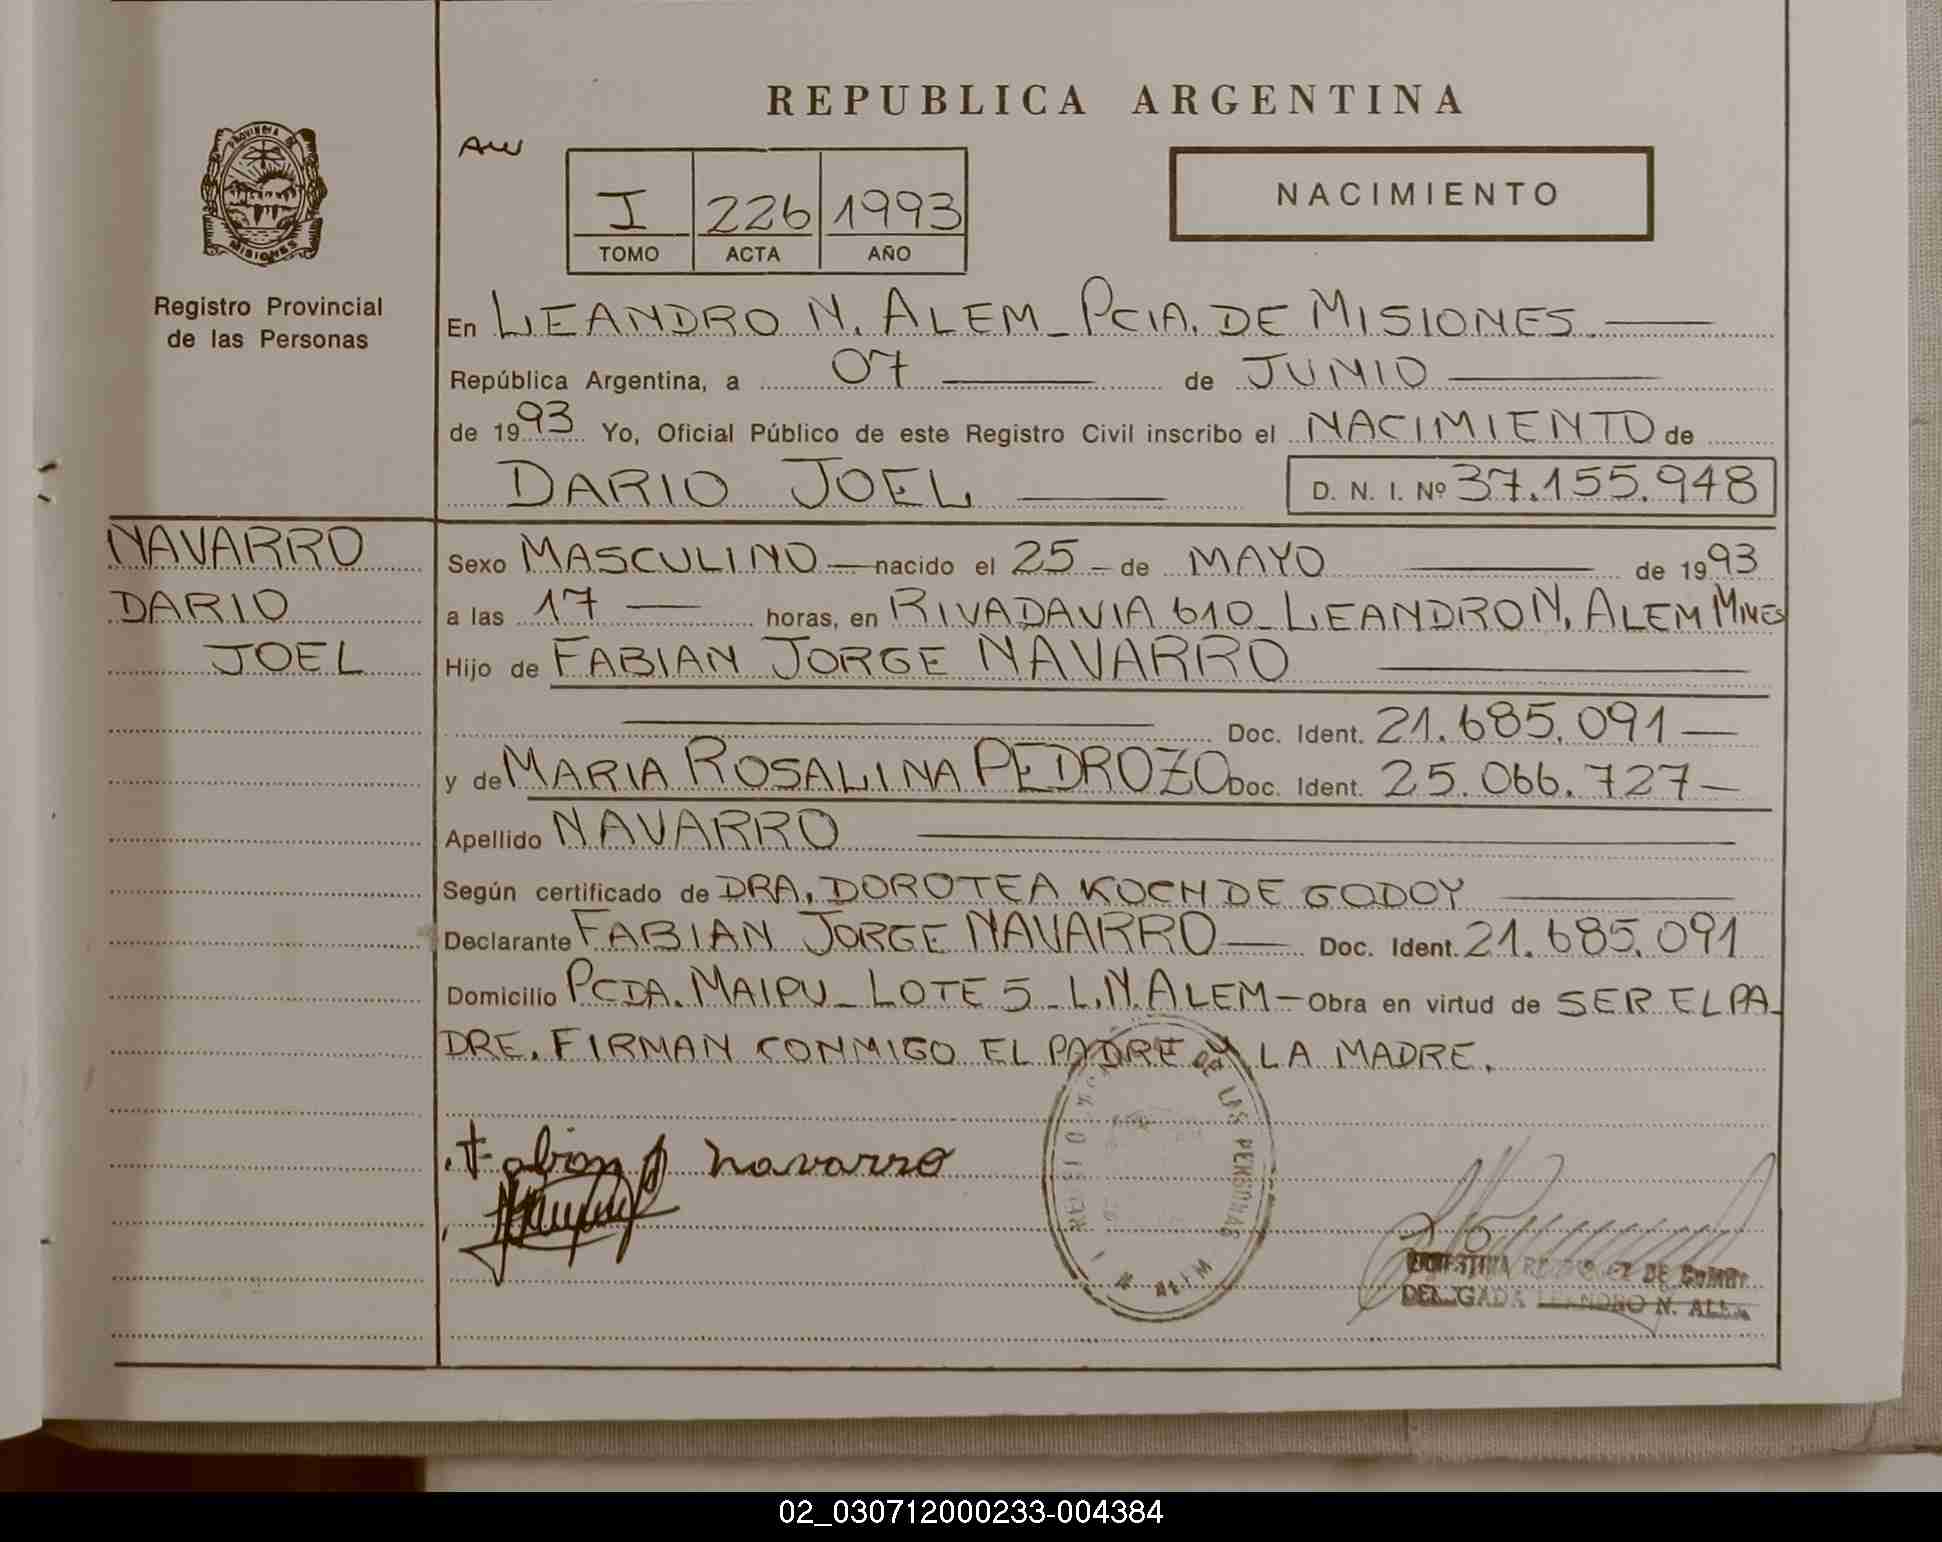 REPUBLICA ARGENTINA
PROVINCIA DE
MISIONES
Registro Provincial
de las Personas
I 226 1993
TOMO ACTA AÑO
NACIMIENTO
En LEANDRO N. ALEM_ PCIA. DE MISIONES.
República Argentina, a 07 de JUNIO
de 1993 Yo, Oficial Público de este Registro Civil inscribo el NACIMIENTO de
DARIO JOEL D. N. I. Nº 37.155.948
NAVARRO
DARIO
JOEL
Sexo MASCULINO nacido el 25 de MAYO de 1993
a las 17 horas, en RIVADAVIA 610_ LEANDRO N. ALEM MNES
Hijo de FABIAN JORGE NAVARRO
Doc. Ident. 21.685.091
y de MARIA ROSALINA PEDROZO Doc. Ident. 25.066.727
Apellido NAVARRO
Según certificado de DRA. DOROTEA KOCH DE GODOY
Declarante FABIAN JORGE NAVARRO Doc. Ident. 21.685.091
Domicilio PCDA. MAIPU_ LOTE 5_ L.N. ALEM Obra en virtud de SER EL PA_
DRE. FIRMAN CONMIGO EL PADRE Y LA MADRE.
Fabian J navarro
DE LAS PERSONAS
DE
LEANDRO N.
02_030712000233-004384